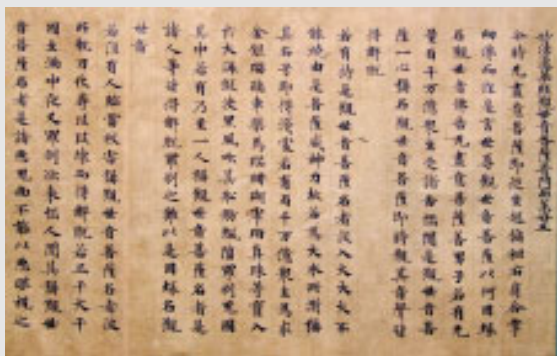 妙法蓮華經觀世音菩薩普門品第廿五
尒時无盡意菩薩即從座起偏袒右肩合掌
向佛而作是言世尊觀世音菩薩以何因緣
名觀世音佛告无盡意菩薩善男子若有无
量百千万億衆生受諸苦惱聞是觀世音菩
薩一心稱名觀世音菩薩即時觀其音聲皆
得解脫
若有持是觀世音菩薩名者設入大火火不
能燒由是菩薩威神力故若為大水所漂稱
其名号即得淺處若有百千万億衆生為求
金銀瑠璃車𤦲馬瑙珊瑚虎珀真珠等寶入
於大海假使黑風吹其船舫飄墮羅剎鬼國
其中若有乃至一人稱觀世音菩薩名者是
諸人等皆得解脫羅剎之難以是因緣名觀
世音
若復有人臨當被害稱觀世音菩薩名者彼
所執刀杖尋段段壞而得解脫若三千大千
國土滿中夜叉羅剎欲來惱人聞其稱觀世
音菩薩名者是諸惡鬼尚不能以惡眼視之